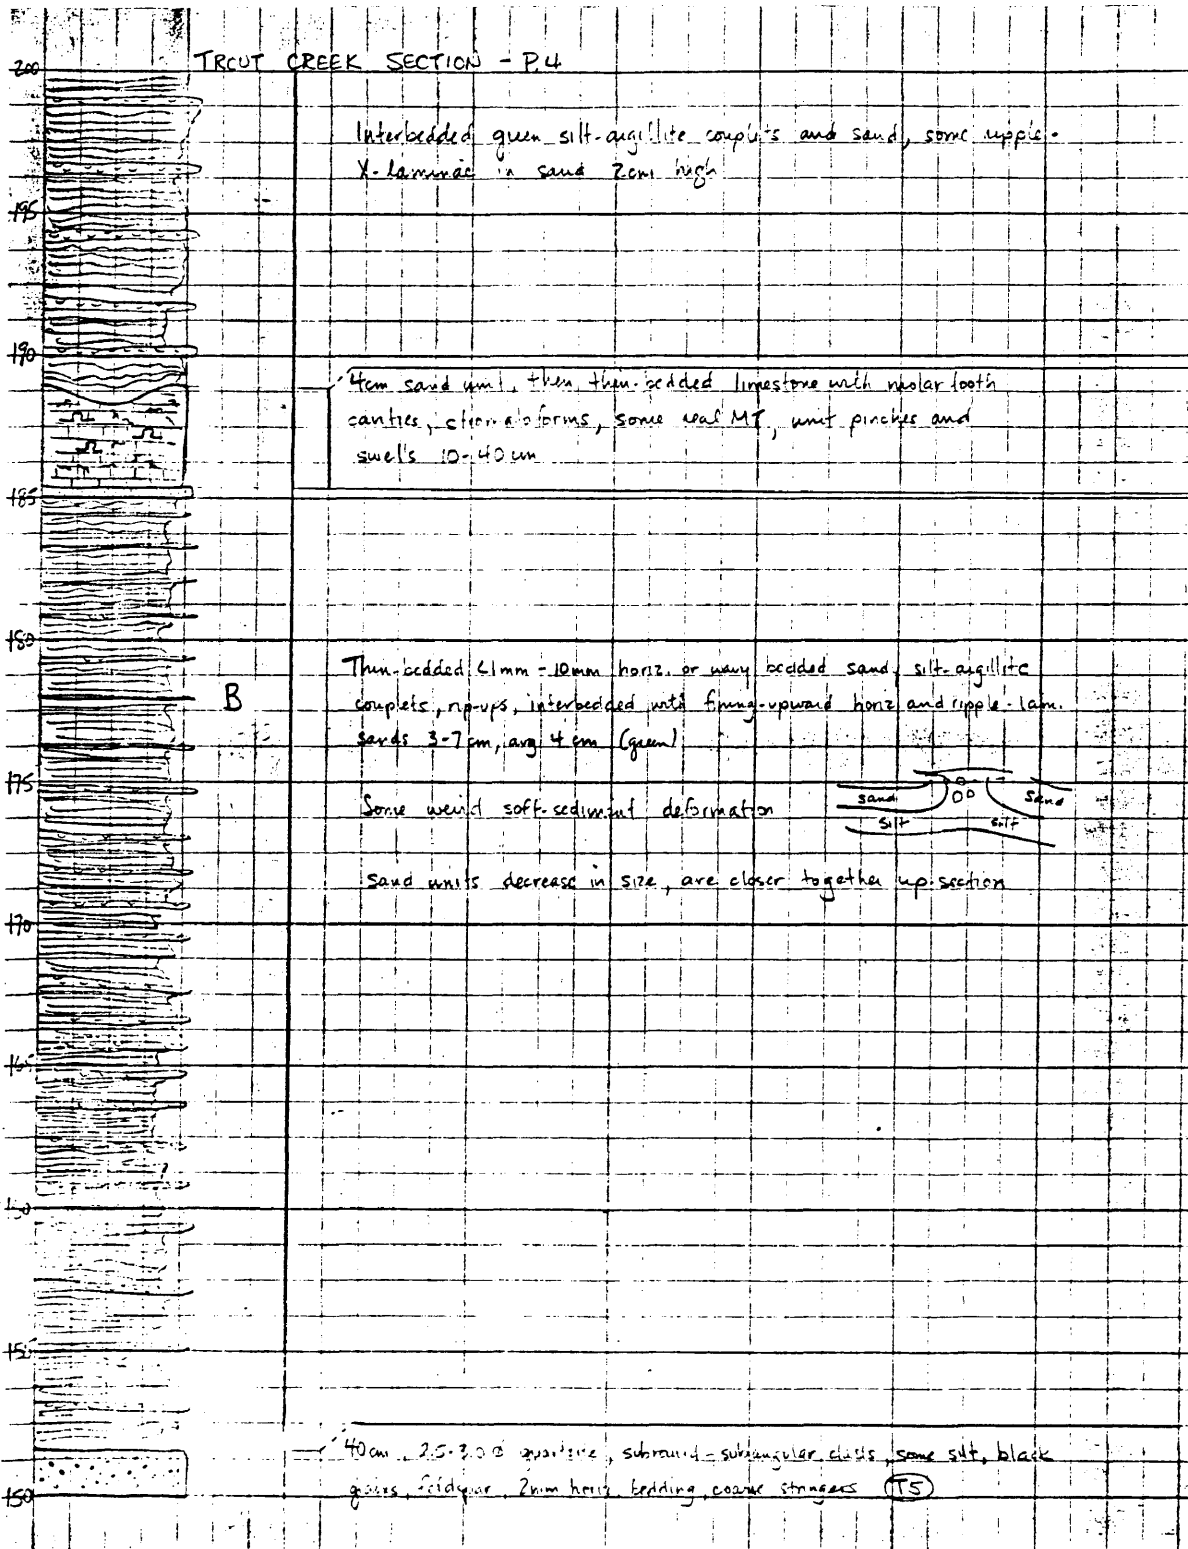 TROUT CREEK SECTION - P.4
200
Interbedded green silt-argillite couplets and sand, some ripple-
X-laminae in sand 2cm high
195
190
4cm sand unit, then thin-bedded limestone with molar tooth
cavities, some real MT, unit pinches and
swells 10-40 cm
185
180
Thin-bedded <1mm - 10mm horiz. or wavy bedded sand, silt-argillite
B
couplets, rip-ups, interbedded with fining-upward horiz and ripple-lam.
sands 3-7 cm, avg 4 cm (green)
175
sand sand
Some weird soft-sediment deformation
silt silt
Sand units decrease in size, are closer together up-section
170
165
155
40cm, 2.5-3.0 Ø quartzite, subround-subangular clasts, some silt, black
grains, feldspar, 2mm horiz. bedding, coarse stringers T5
150